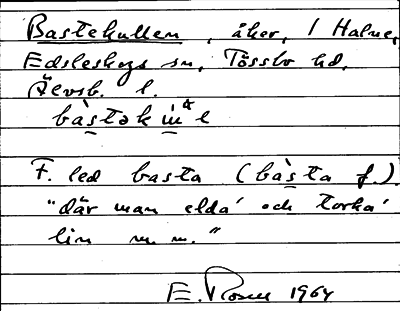 Bastekullen, åker, 1 Halne,
Edsleskogs sn, Tössbo hd,
Älvsb. l.
F. led basta (bàsta f.)
"där man elda' och torka'
lin m. m."
E. Rosell 1964